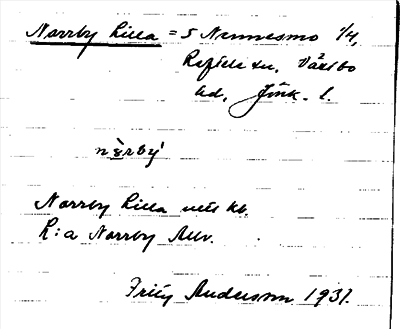 Norrby Lilla = 5 Nennesmo 1/4,
Reftele sn, Västbo
hd, Jönk. l.
nòrbý
Norrby Lilla uttl kb.
L:a Norrby Allv.
Frity Andersson 1931.